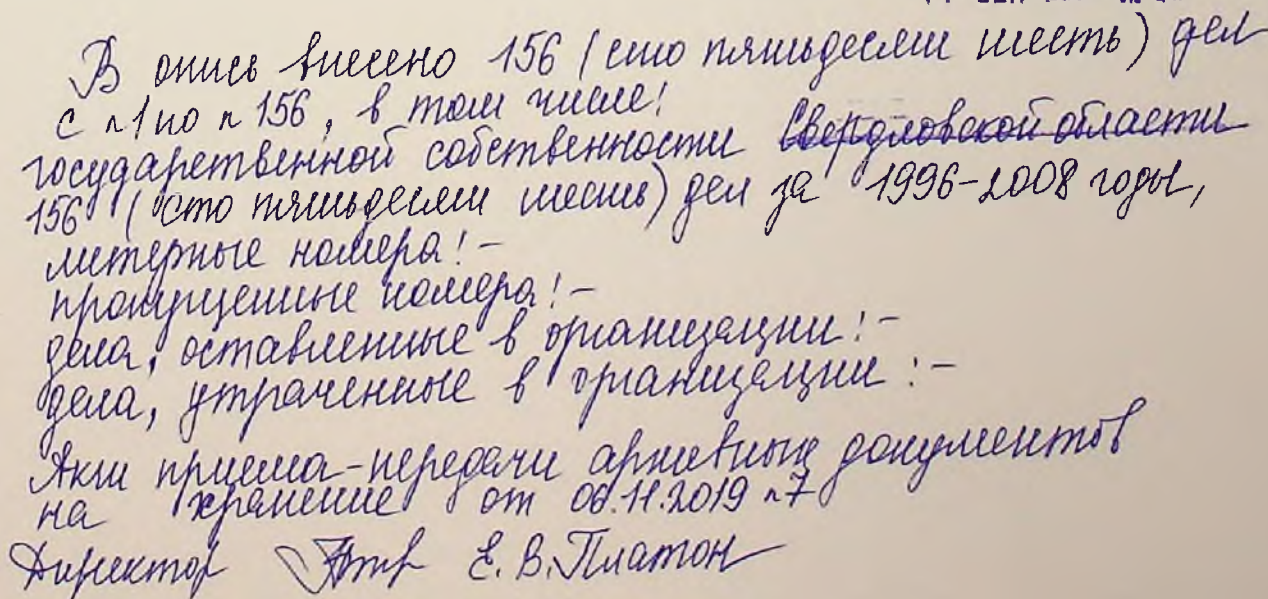 В опись внесено 156 (сто пятьдесят шесть) дел
с №1 по № 156, в том числе:
государственной собственности Свердловской области
156 (сто пятьдесят шесть) дел за 1996-2008 годы,
литерные номера: -
пропущенные номера: -
дела, оставленные в организации: -
дела, утраченные в организации: -
Акт приема-передачи архивных документов
на хранение от 06.11.2019 №7
Директор Е. В. Платон